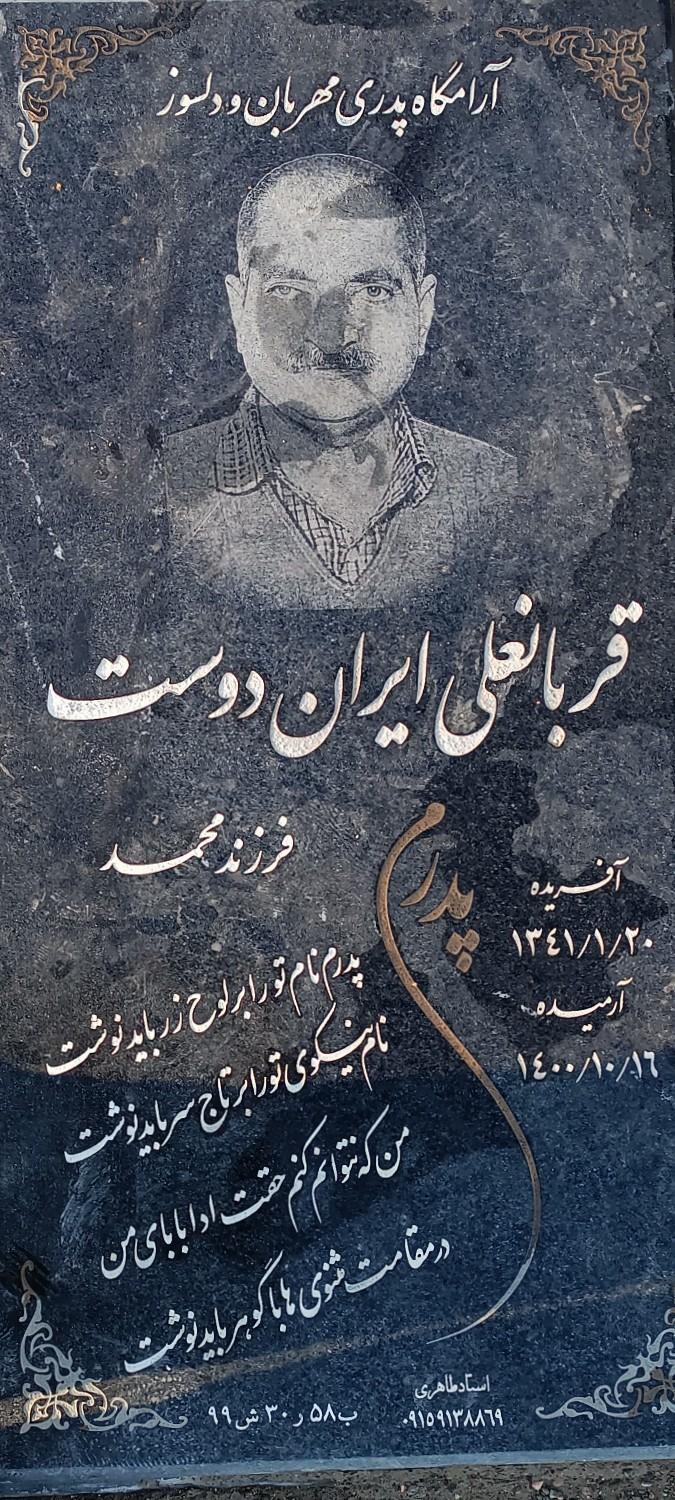 آرامگاه پدری مهربان و دلسوز
قربانعلی ایران دوست
فرزند محمد
پدرم
آفریده
۱۳٤۱/۱/۲۰
آرمیده
۱٤۰۰/۱۰/۱٦
پدرم نام تو را بر لوح زر باید نوشت
نام نیکوی تو را بر تاج سر باید نوشت
من که نتوانم کنم حقت ادا بابای من
در مقامت مثنوی ها با گوهر باید نوشت
استاد طاهری
۰۹۱۵۹۱۳۸۸٦۹
ب ۵۸ ر ۳۰ ش ۹۹